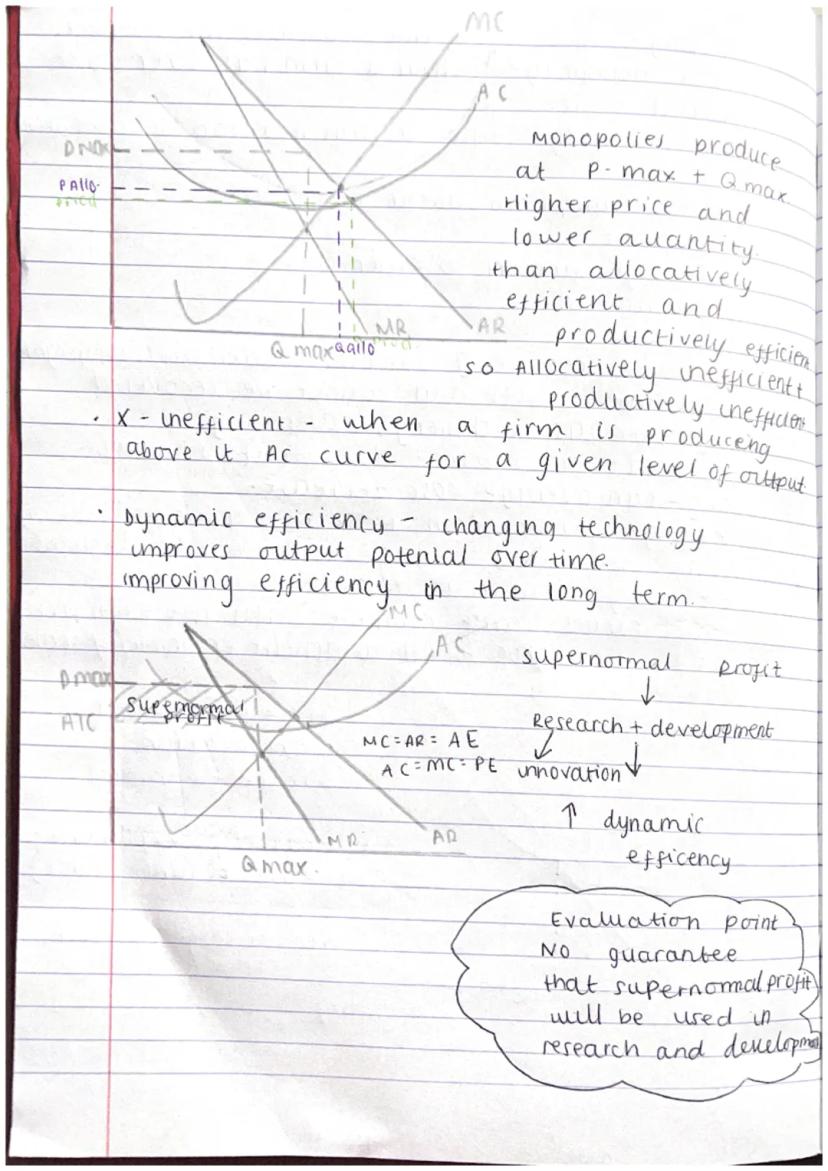 MC
AC
Monopolies produce
at P-max + Qmax.
Higher price and
lower quantity.
than allocatively
efficient and
productively efficient
so Allocatively inefficient +
productively inefficient
Pmax
P Allo.
Prod
MR
AR
Q max Qallo Prod.
· X - inefficient - when a firm is produceng
above it AC curve for a given level of output
· Dynamic efficiency - changing technology
improves output potenial over time.
improving efficiency in the long term.
MC
AC
Pmax
supernormal
profit
ATC
MC = AR = AE
AC = MC = PE
MR
AR
Qmax.
supernormal profit
↓
Research + development
↓ ↓
innovation
↑ dynamic
efficency
Evaluation point
No guarantee
that supernormal profit
will be used in
research and developmen